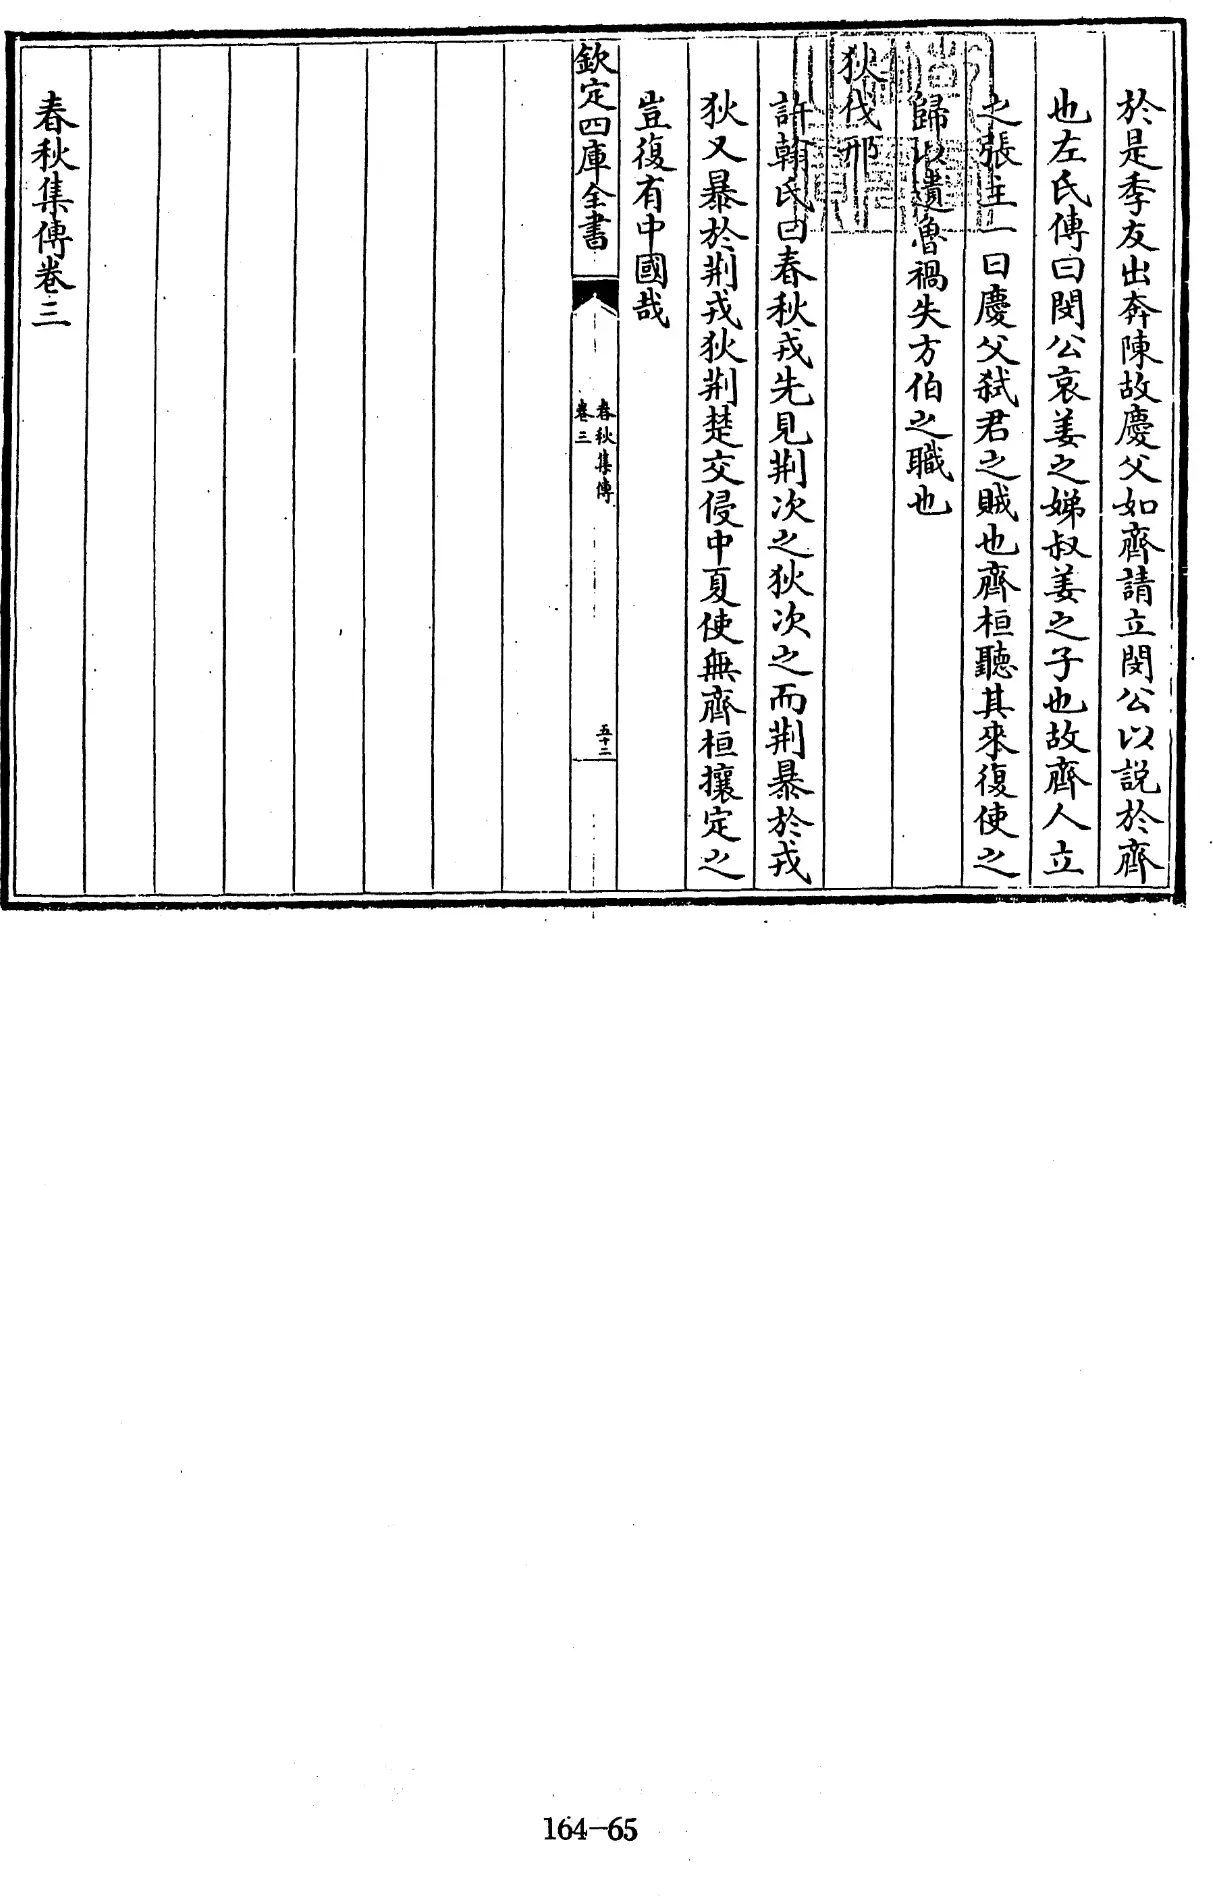 於是季友出奔陳故慶父如齊請立閔公以説於齊
也左氏傳曰閔公哀姜之娣叔姜之子也故齊人立
之張主一曰慶父弑君之賊也齊桓聽其來復使之
歸以遺魯禍失方伯之職也
狄伐邢
許翰氏曰春秋戎先見荆次之狄次之而荆暴於戎
狄又暴於荆戎狄荆楚交侵中夏使無齊桓攘定之
豈復有中國哉
欽定四庫全書
春秋集傳
卷三
五十二
春秋集傳卷三
164-65